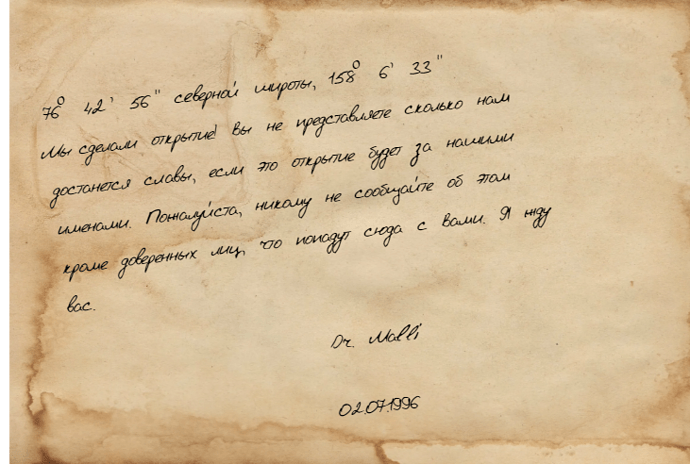 76° 42' 56" северной широты, 158° 6' 33"
Мы сделали открытие! Вы не представляете сколько нам
достанется славы, если это открытие будет за нашими
именами. Пожалуйста, никому не сообщайте об этом
кроме доверенных лиц, что попадут сюда с вами. Я жду
вас.
Dr. Malli
02.07.1996